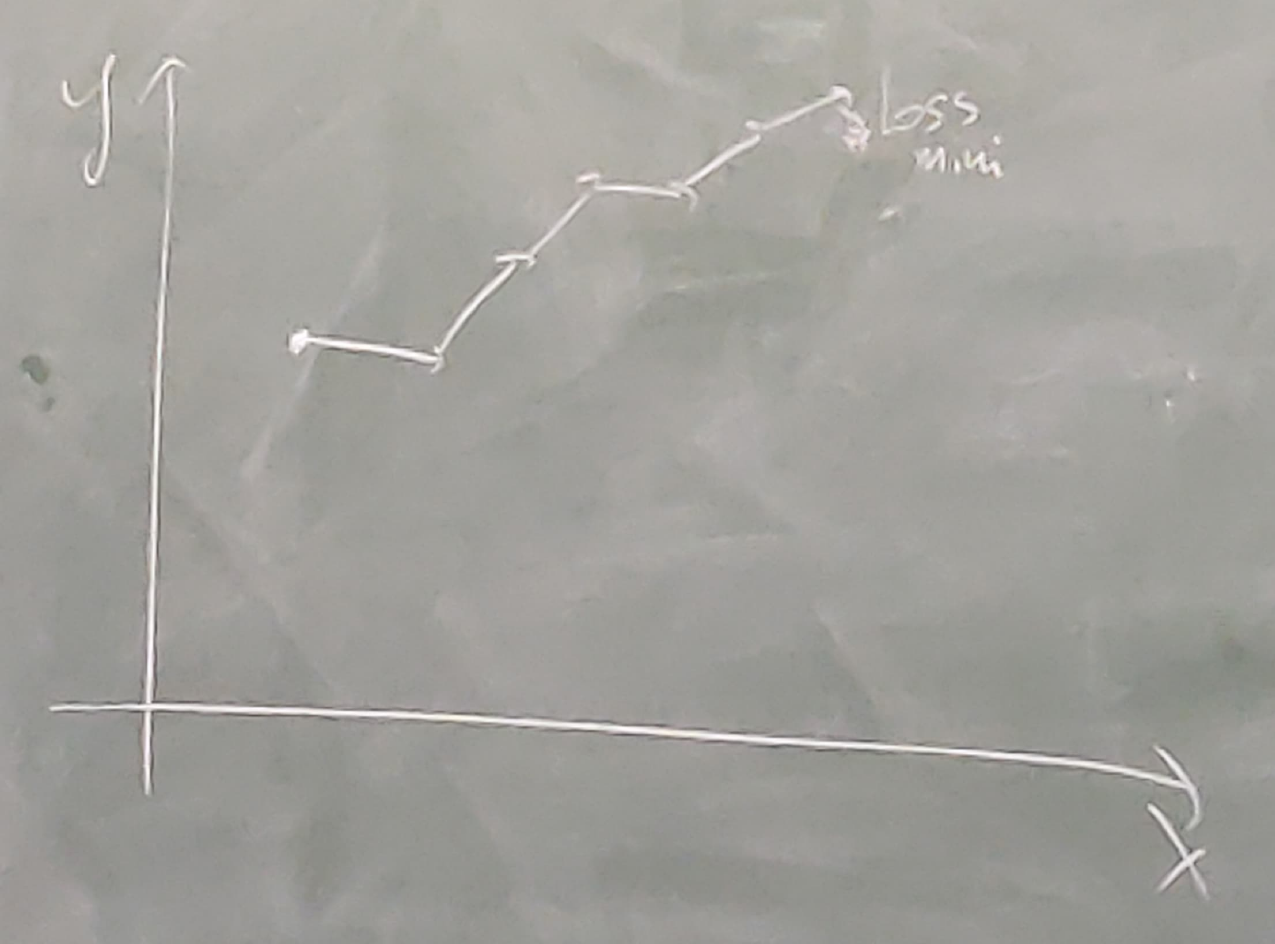 y
Loss
mini
x